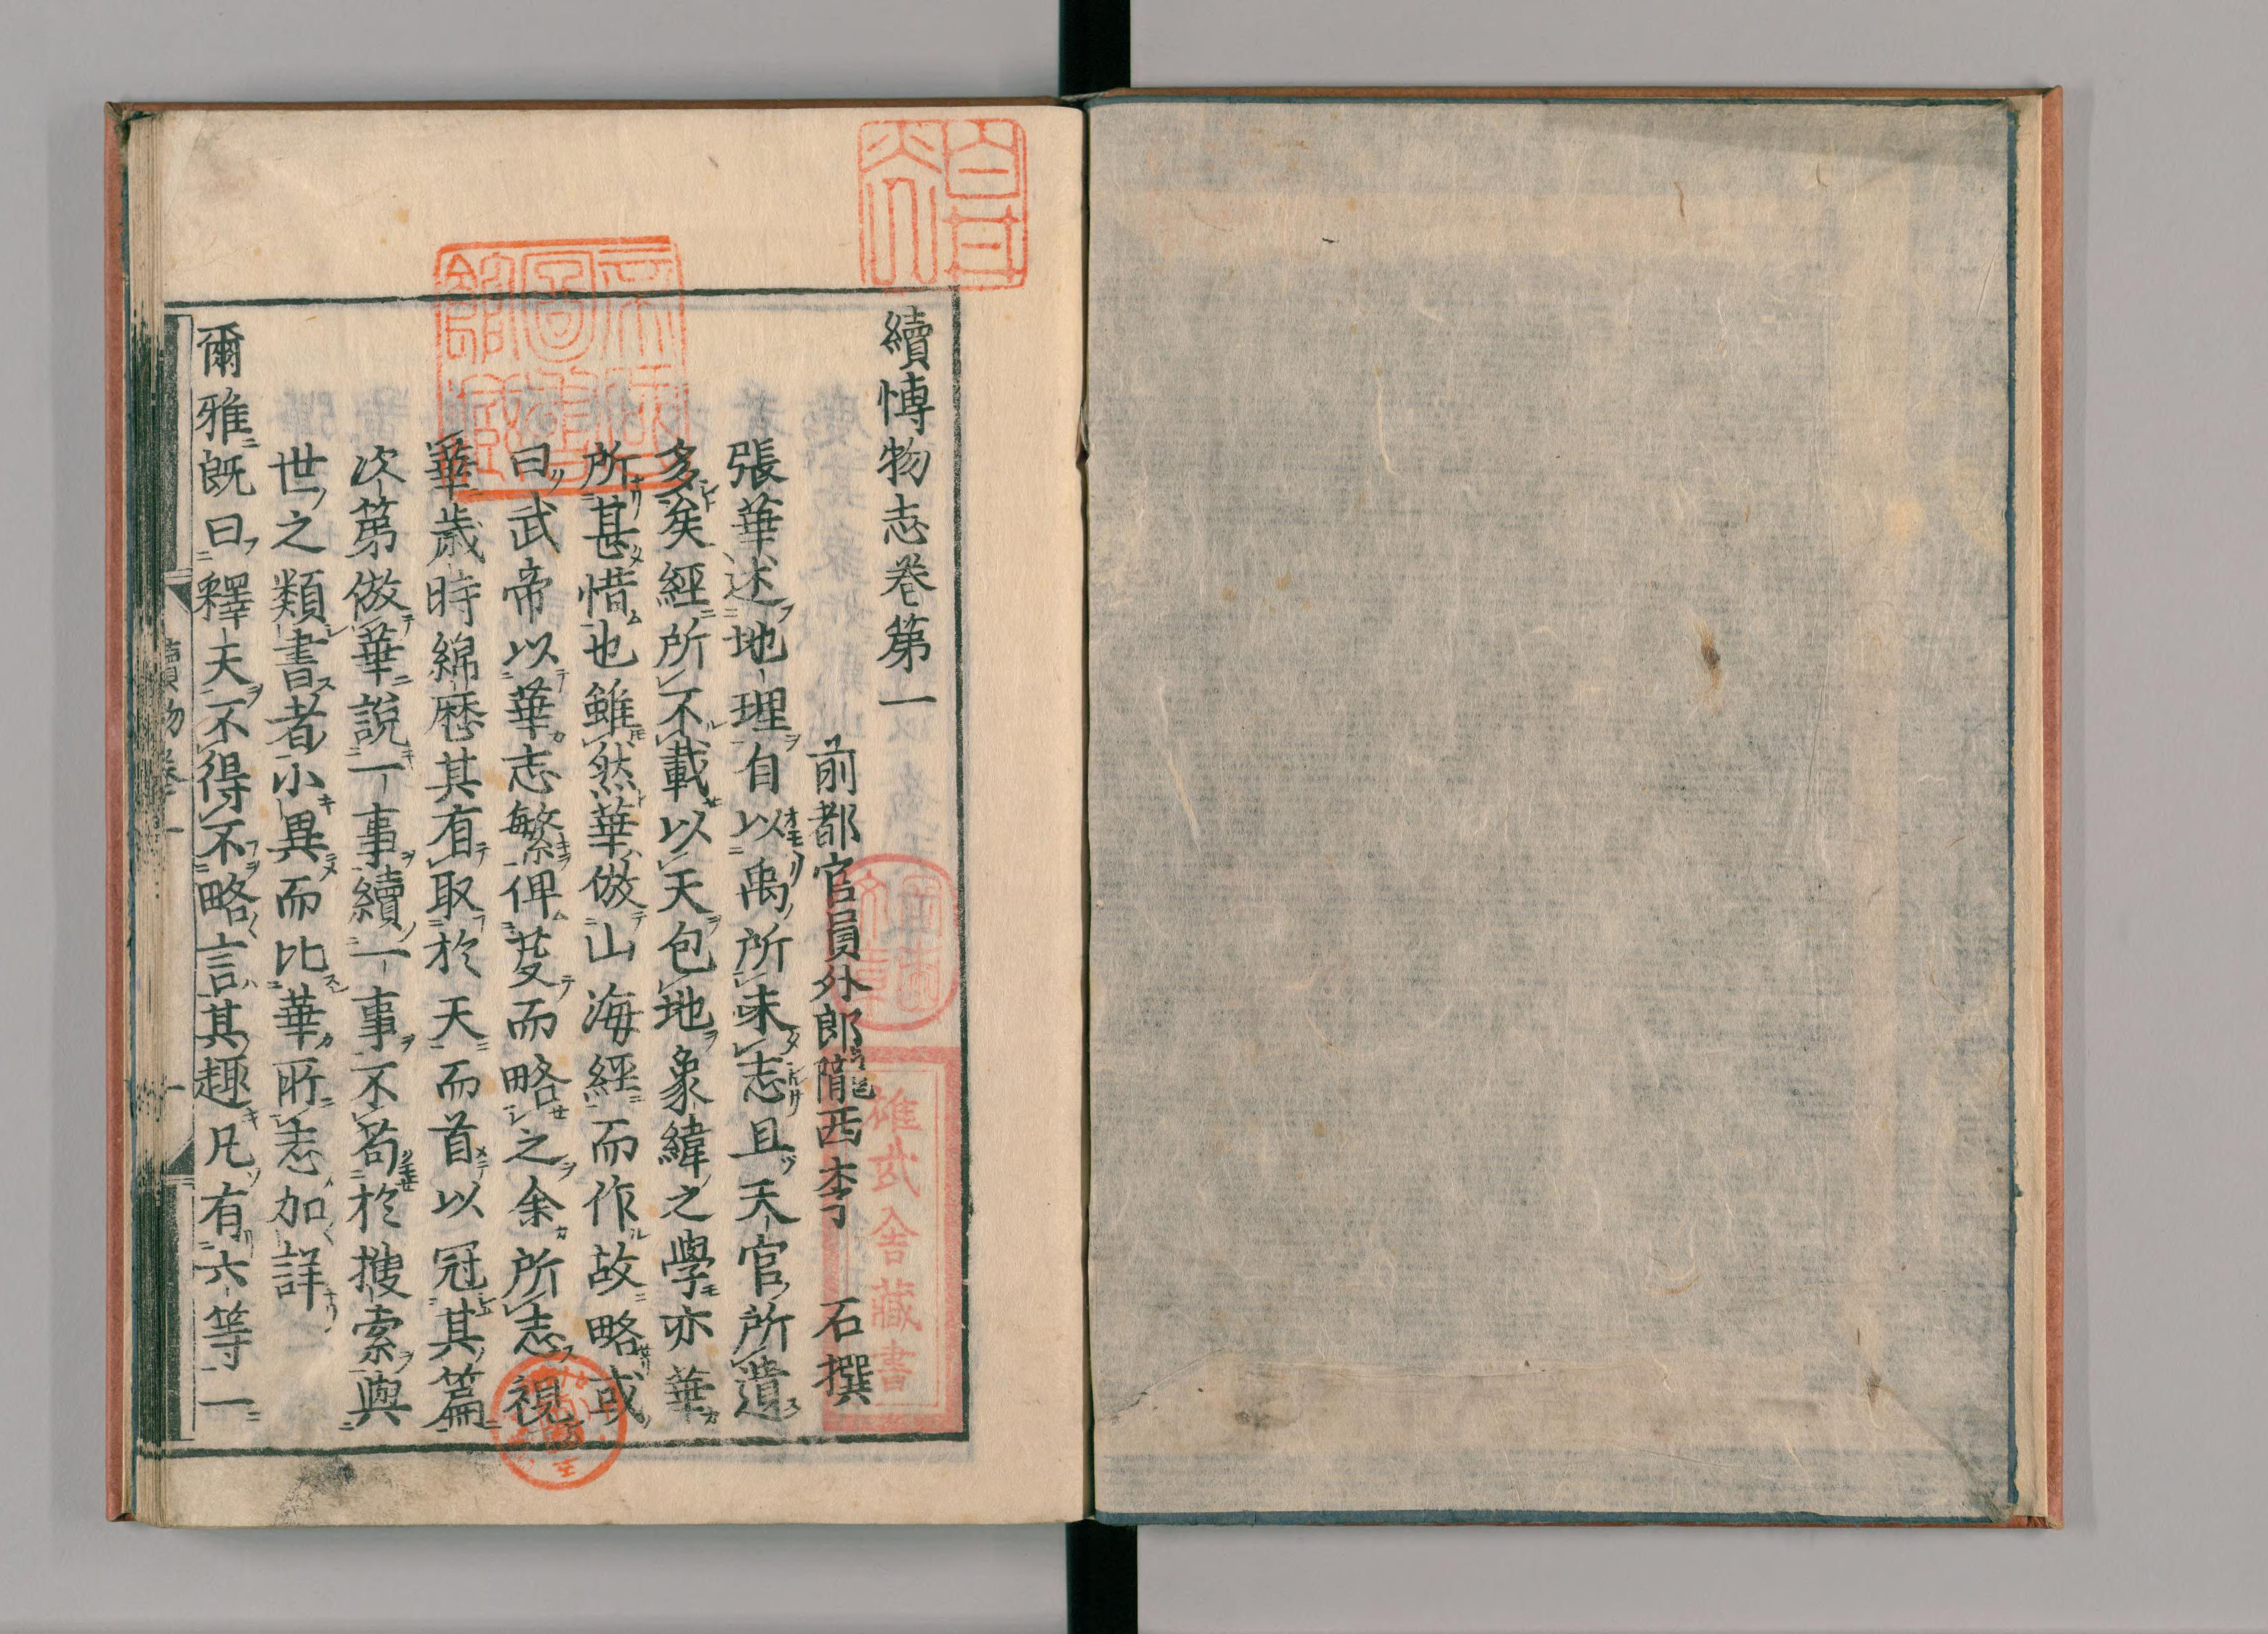 續博物志巻第一
前都官員外郎隴西李　石撰
張華述地理自以禹所未志且天官所遺
多矣經所不載以天包地象緯之學亦華
所甚惜也雖然華倣山海經而作故略或
曰武帝以華志繁俾芟而略之余所志視
華歳時綿歴其有取於天而首以冠其篇
次第倣華說一事續一事不苟於搜索與
世之類書者小異而比華所志加詳
爾雅既曰釋天不得不略言其趣凡有六等一
續物巻一
一
帝國圖書館藏
雄武舍藏書